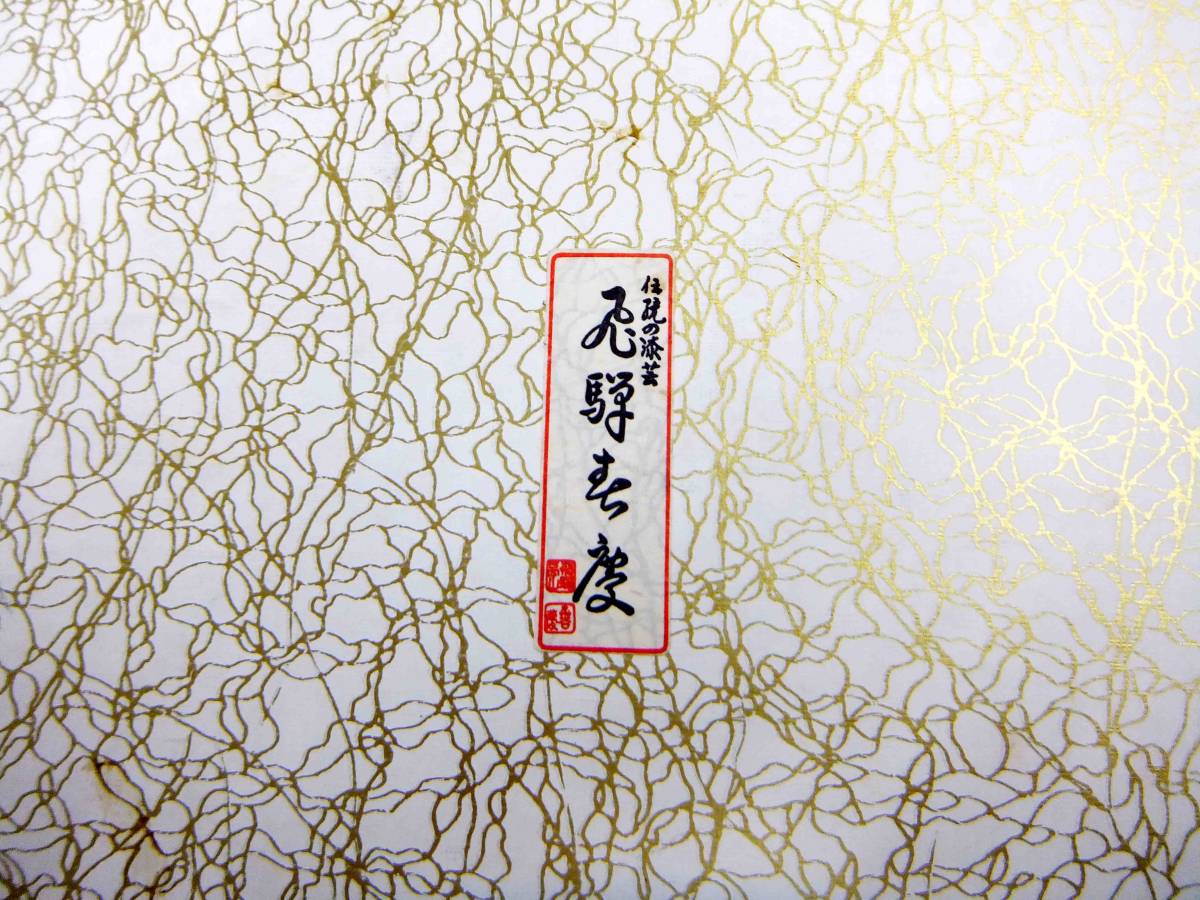 伝統の漆芸
飛騨春慶